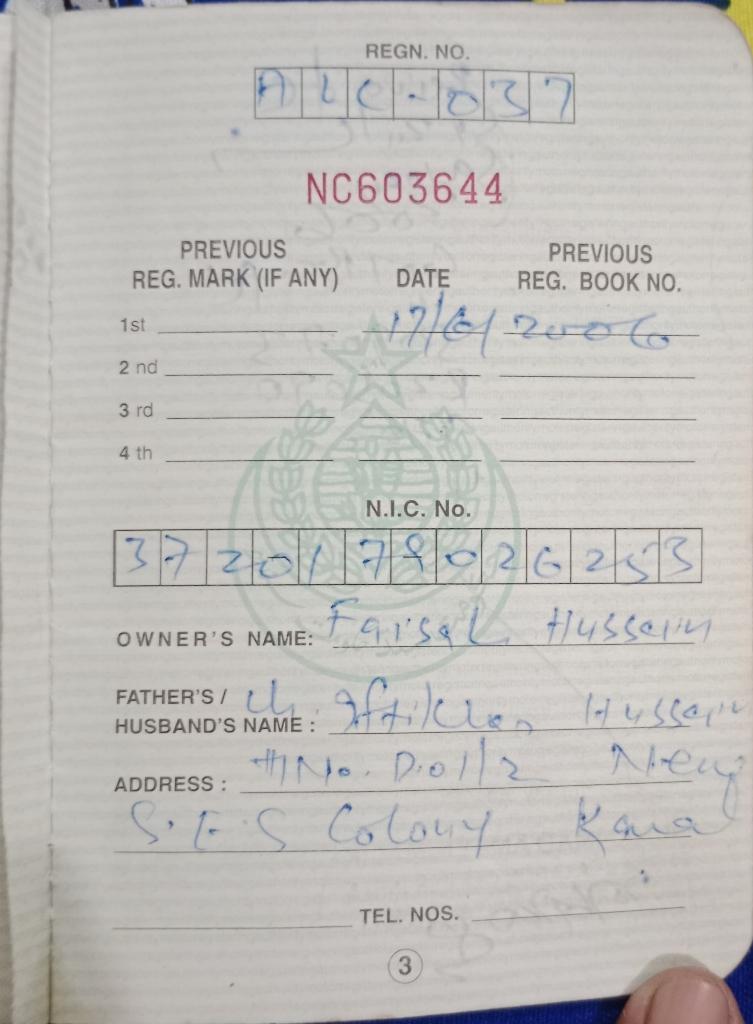 REGN. NO.
ALC-037
NC603644
PREVIOUS REG. MARK (IF ANY) DATE PREVIOUS REG. BOOK NO.
1st 17/6/2006
2 nd
3 rd
4 th
N.I.C. No.
3720179026253
OWNER'S NAME: Faisal Hussain
FATHER'S / HUSBAND'S NAME: Ch. Iftikhar Hussain
ADDRESS: #No. D.01/2 New
S.E.S Colony
TEL. NOS.
3